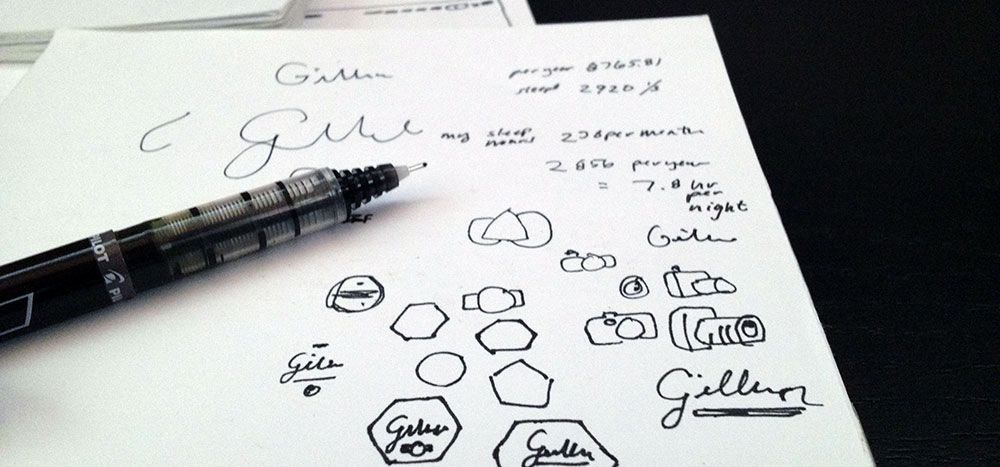 Gillen
per year 8765.81
sleep 2920 1/3
Gille
my sleep
hours 238 per month
2856 per year
= 7.8 hr
per
night
PILOT
Gillen
Gillen
Gillen
Gillen